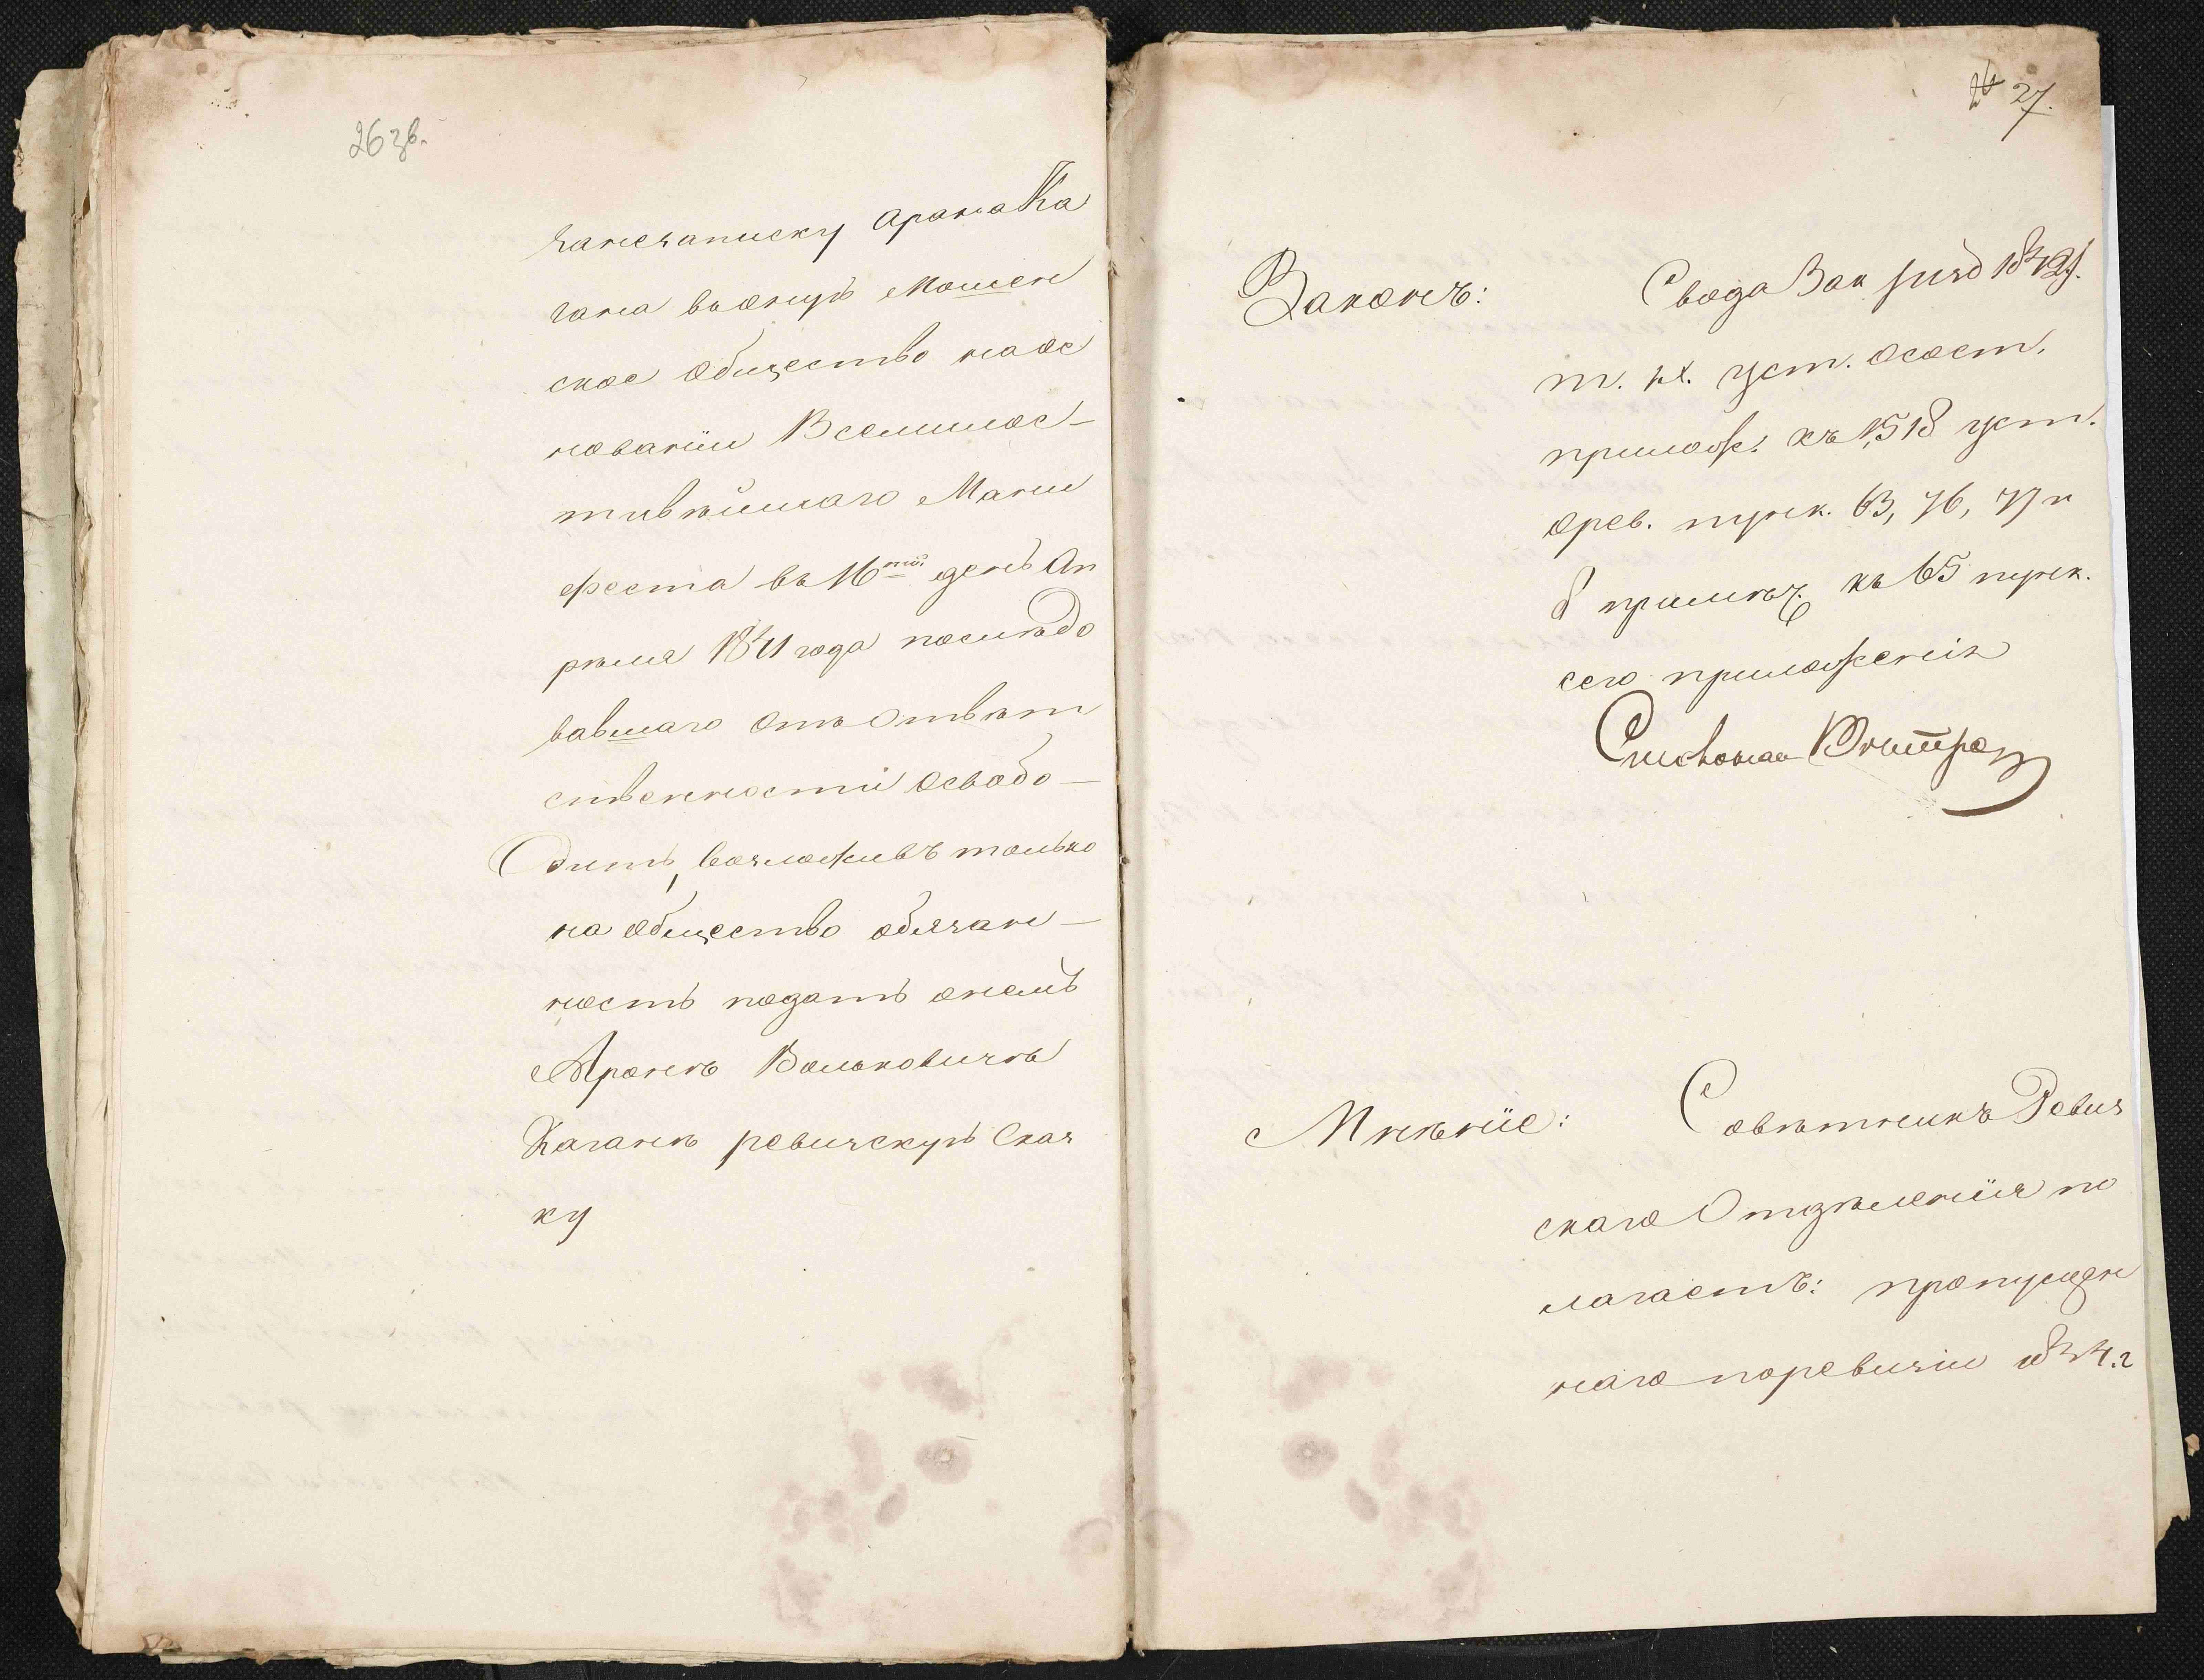 26 зв.
занезаписку Арона Ка
гана въ онуъ Мошен
ское общество наос
нованіи Всемилос-
тивѣйшаго Мани
феста въ 16той день Ап
рѣля 1841 года последо
вавшаго отъ отвѣт
ственности освобо-
дить, возложивъ только
на общество обязан-
ность подать онемъ
Аронѣ Вольковичѣ
Каганѣ ревизскуъ сказ
ку
27.
Законъ:
Свода Зак изд 1842 г.
т. IX. уст. осост.
прилож: къ 1518 уст.
орев. пунк. 63, 76, 77 и
примѣч. къ 65 пунк.
сего приложенія
Мнѣніе:
Совѣтникъ Ревиз
скаго Отдѣленія по
лагаетъ: пропущен
наго поревизіи 1834. г